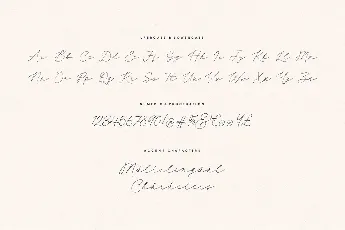 UPPERCASE & LOWERCASE
Aa Bb Cc Dd Ee Ff Gg Hh Ii Jj Kk Ll Mm
Nn Oo Pp Qq Rr Ss Tt Uu Vv Ww Xx Yy Zz
ACCENT CHARACTERS
Multilingual
Characters